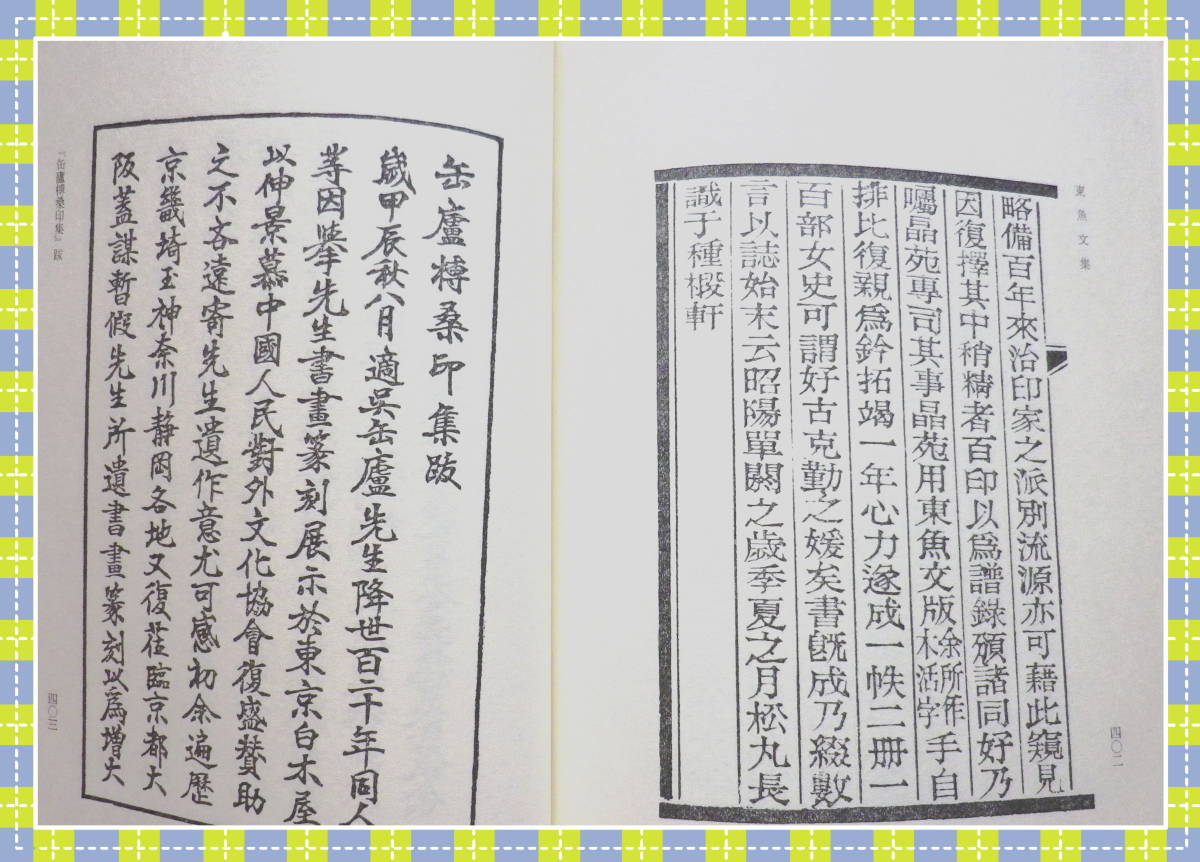 東魚文集
略備百年來治印家之派別流源亦可藉此窺見
因復擇其中稍精者百印以爲譜錄頒諸同好乃
囑晶苑專司其事晶苑用東魚文版余所作木活字手自
排比復親爲鈐拓竭一年心力遂成一帙二冊一
百部女史可謂好古克勤之媛矣書既成乃綴數
言以誌始末云昭陽單閼之歲季夏之月松丸長
識于種椴軒
四〇二
缶廬榑桑印集跋
歲甲辰秋八月適吳缶廬先生降世百二十年同人
等因舉先生書畫篆刻展示於東京白木屋
以伸景慕中國人民對外文化協會復盛賛助
之不吝遠寄先生遺作意尤可感初余遍歷
京畿埼玉神奈川靜岡各地又復莅臨京都大
阪蓋謀暫假先生所遺書畫篆刻以爲增大
『缶廬榑桑印集』跋
四〇三